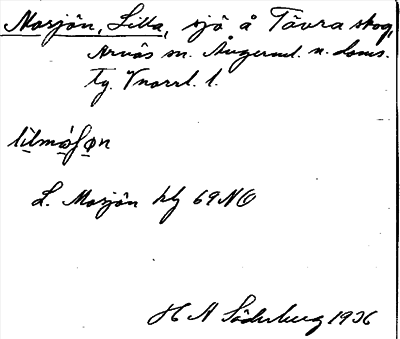 Mosjön, Lilla, sjö å Tävra skog,
Arnäs sn. Ångerml. n. doms.
Tg. Vnorrl. l.
lìlmósʃøn
L. Mosjön hlj 69NO
H A Söderberg 1936